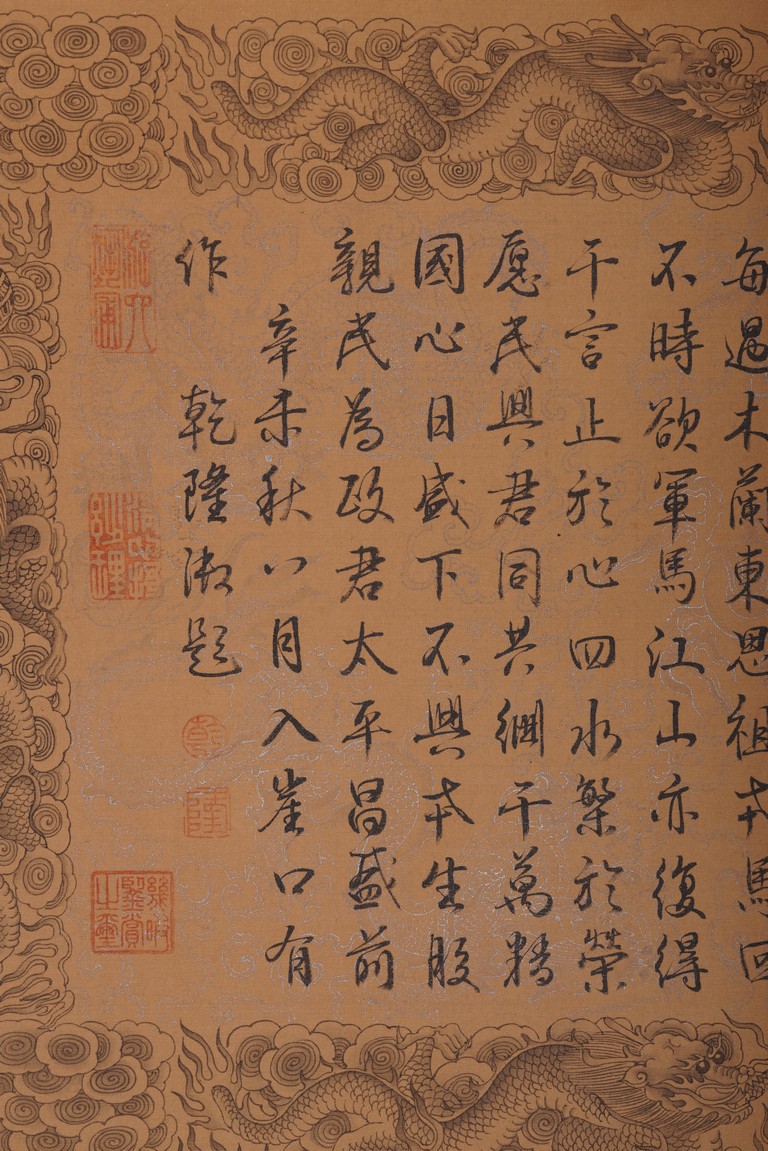 每遇木蘭東思祖夲馬回
不時欲軍馬江山亦復得
干言止於心四水繁於榮
愿民興君同共干萬
國心日盛下不興夲生股
親民為政君太平昌盛前
辛未秋八月入崖口有
作
乾隆御題
乾
隆
幾暇鑒賞之璽